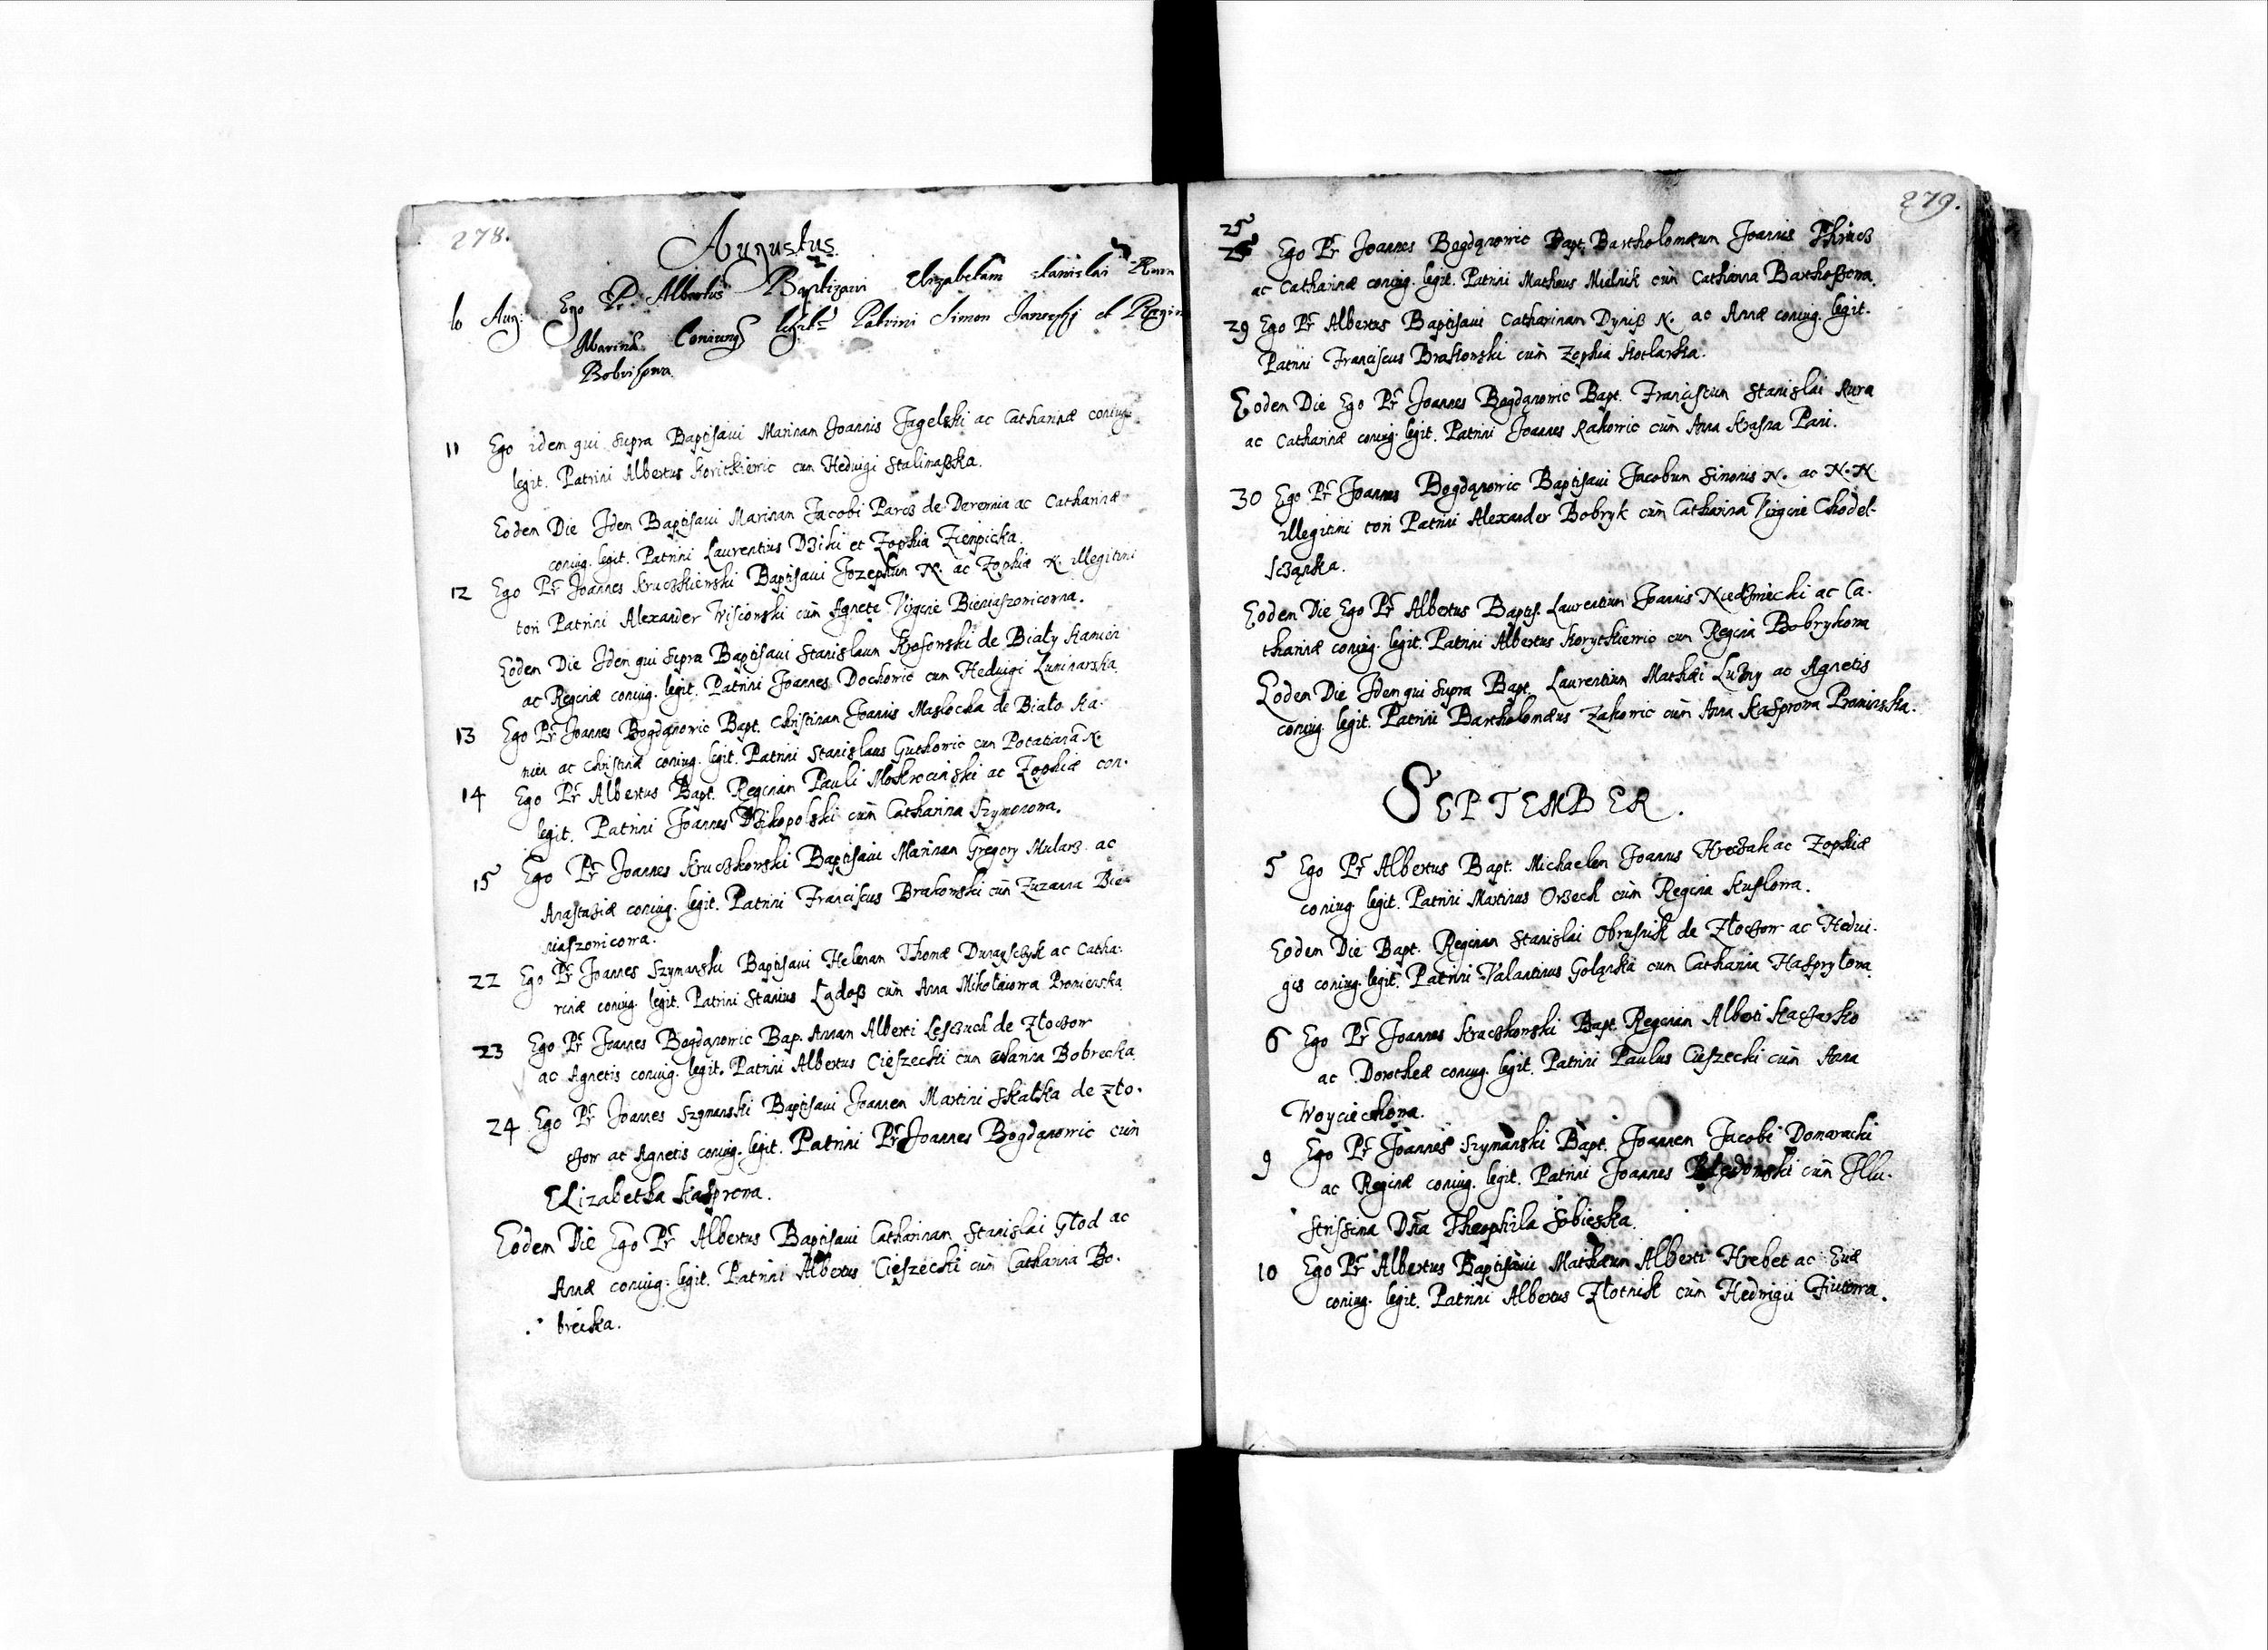 278.
Augustus
10 Aug: Ego Pr Albertus Baptizavi Elizabetam Stanislai
Marinæ Coniung legit Patrini Simon Janowski et Regin
11 Ego idem qui supra Baptisaui Marinam Joannis Jagelski ac Catharinæ coniug.
legit. Patrini Albertus Koritkiewic cun Heduigi Stalinaßka.
Eoden Die Jdem Baptisaui Marinam Jacobi Parcz de Derewnia ac Catharinæ
coniug. legit. Patrini Laurentius Dziki et Zophia Zienpicka.
12 Ego Pr Joannes Kruczkiewski Baptisaui Jozephun N. ac Zophiæ N. illegitimi
tori Patrini Alexander Wisiowski cun Agnete Virgine Bieniaszowicowna.
Eoden Die Jden qui supra Baptisaui Stanislaun Krosowski de Biały Kamien
ac Reginæ coniug. legit. Patrini Joannes Dochowic cun Heduigi Luminarska
13 Ego Pr Joannes Bogdąnowic Bapt. Christinan Joannis Maslocha de Biało Ka-
mien ac Christinæ coniug. legit. Patrini Stanislaus Guthowic cun Potatiana N.
14 Ego Pr Albertus Bapt. Reginan Pauli Mokrocinski ac Zophiæ con.
legit. Patrini Joannes Dzikopolski cun Catharina Szymonowa.
15 Ego Pr Joannes Kruczkowski Baptisaui Marinan Gregory Mularz ac
Anastaziæ coniug. legit. Patrini Franciscus Brakowski cun Zuzanna Bie-
niaszowicowa.
22 Ego Pr Joannes Szymanski Baptisaui Helenam Thomæ Dunaysczyk ac Catha:
rinæ coniug. legit. Patrini Stanius Ładoß cun Anna Mikołaiowa Promienska
23 Ego Pr Joannes Bogdąnowic Bap. Annam Alberti Leszuch de Złoczow
ac Agnetis coniug. legit. Patrini Albertus Cieszecki cun Anna Bobrecka
24 Ego Pr Joannes Szymanski Baptisaui Joannen Martini Skałka de Zło-
czow ac Agnetis coniug. legit. Patrini Pr Joannes Bogdąnowic cun
Elizabetha Kasprowa.
Eoden Die Ego Pr Albertus Baptisaui Catharinam Stanislai Głod ac
Annæ coniug. legit. Patrini Albertus Cieszecki cun Catharina Bo-
brecka.
279.
25
Ego Pr Joannes Bogdąnowic Bapt. Bartholomæun Joannis
ac Catharinæ coniug. legit. Patrini Matheus Mielnik cun Catharina Barthoszowa
29 Ego Pr Albertus Baptisaui Catharinam Dyniß N. ac Annæ coniug. legit.
Patrini Franciscus Brakowski cun Zophia Kotlarka.
Eoden Die Ego Pr Joannes Bogdąnowic Bapt. Franciscun Stanislai Kura
ac Catharinæ coniug. legit. Patrini Joannes Rakowic cun Anna Krasna Pani.
30 Ego Pr Joannes Bogdąnowic Baptisaui Jacobun Simonis N. ac N. N
illegitimi tori Patrini Alexander Bobryk cun Catharina Virgine Chodel-
scząnka.
Eoden Die Ego Pr Albertus Baptis. Laurentiun Joannis Niedzwiecki ac Ca-
tharinæ coniug. legit. Patrini Albertus Korytkiewic cun Regina Bobrykowa
Eoden Die Jden qui supra Bapt. Laurentiun Mathæi Luzny ac Agnetis
coniug. legit. Patrini Bartholomæus Zakowic cun Anna Kasprowa Promienska.
SEPTEMBER.
5 Ego Pr Albertus Bapt. Michaelem Joannis Hreczak ac Zophiæ
coniug. legit. Patrini Martinus Orzech cun Regina Kuslowa.
Eoden Die Bapt. Reginan Stanislai Obrusnik de Złoczow ac Hedui-
gis coniug. legit. Patrini Valantinus Goląnka cun Catharina Hasprylowa
6 Ego Pr Joannes Kraczkowski Bapt. Reginan Alberti Kaczarko
ac Dorotheæ coniug. legit. Patrini Paulus Cieszecki cun Anna
Woyciechowa.
9 Ego Pr Joannes Szymanski Bapt. Joannen Jacobi Domaracki
ac Reginæ coniug. legit. Patrini Joannes cun Jllu-
strissima Dna Theophila Sobieska.
10 Ego Pr Albertus Baptisaui Mathæun Alberti Hrebet ac Euæ
coniug. legit. Patrini Albertus Złotnik cun Hedwigii